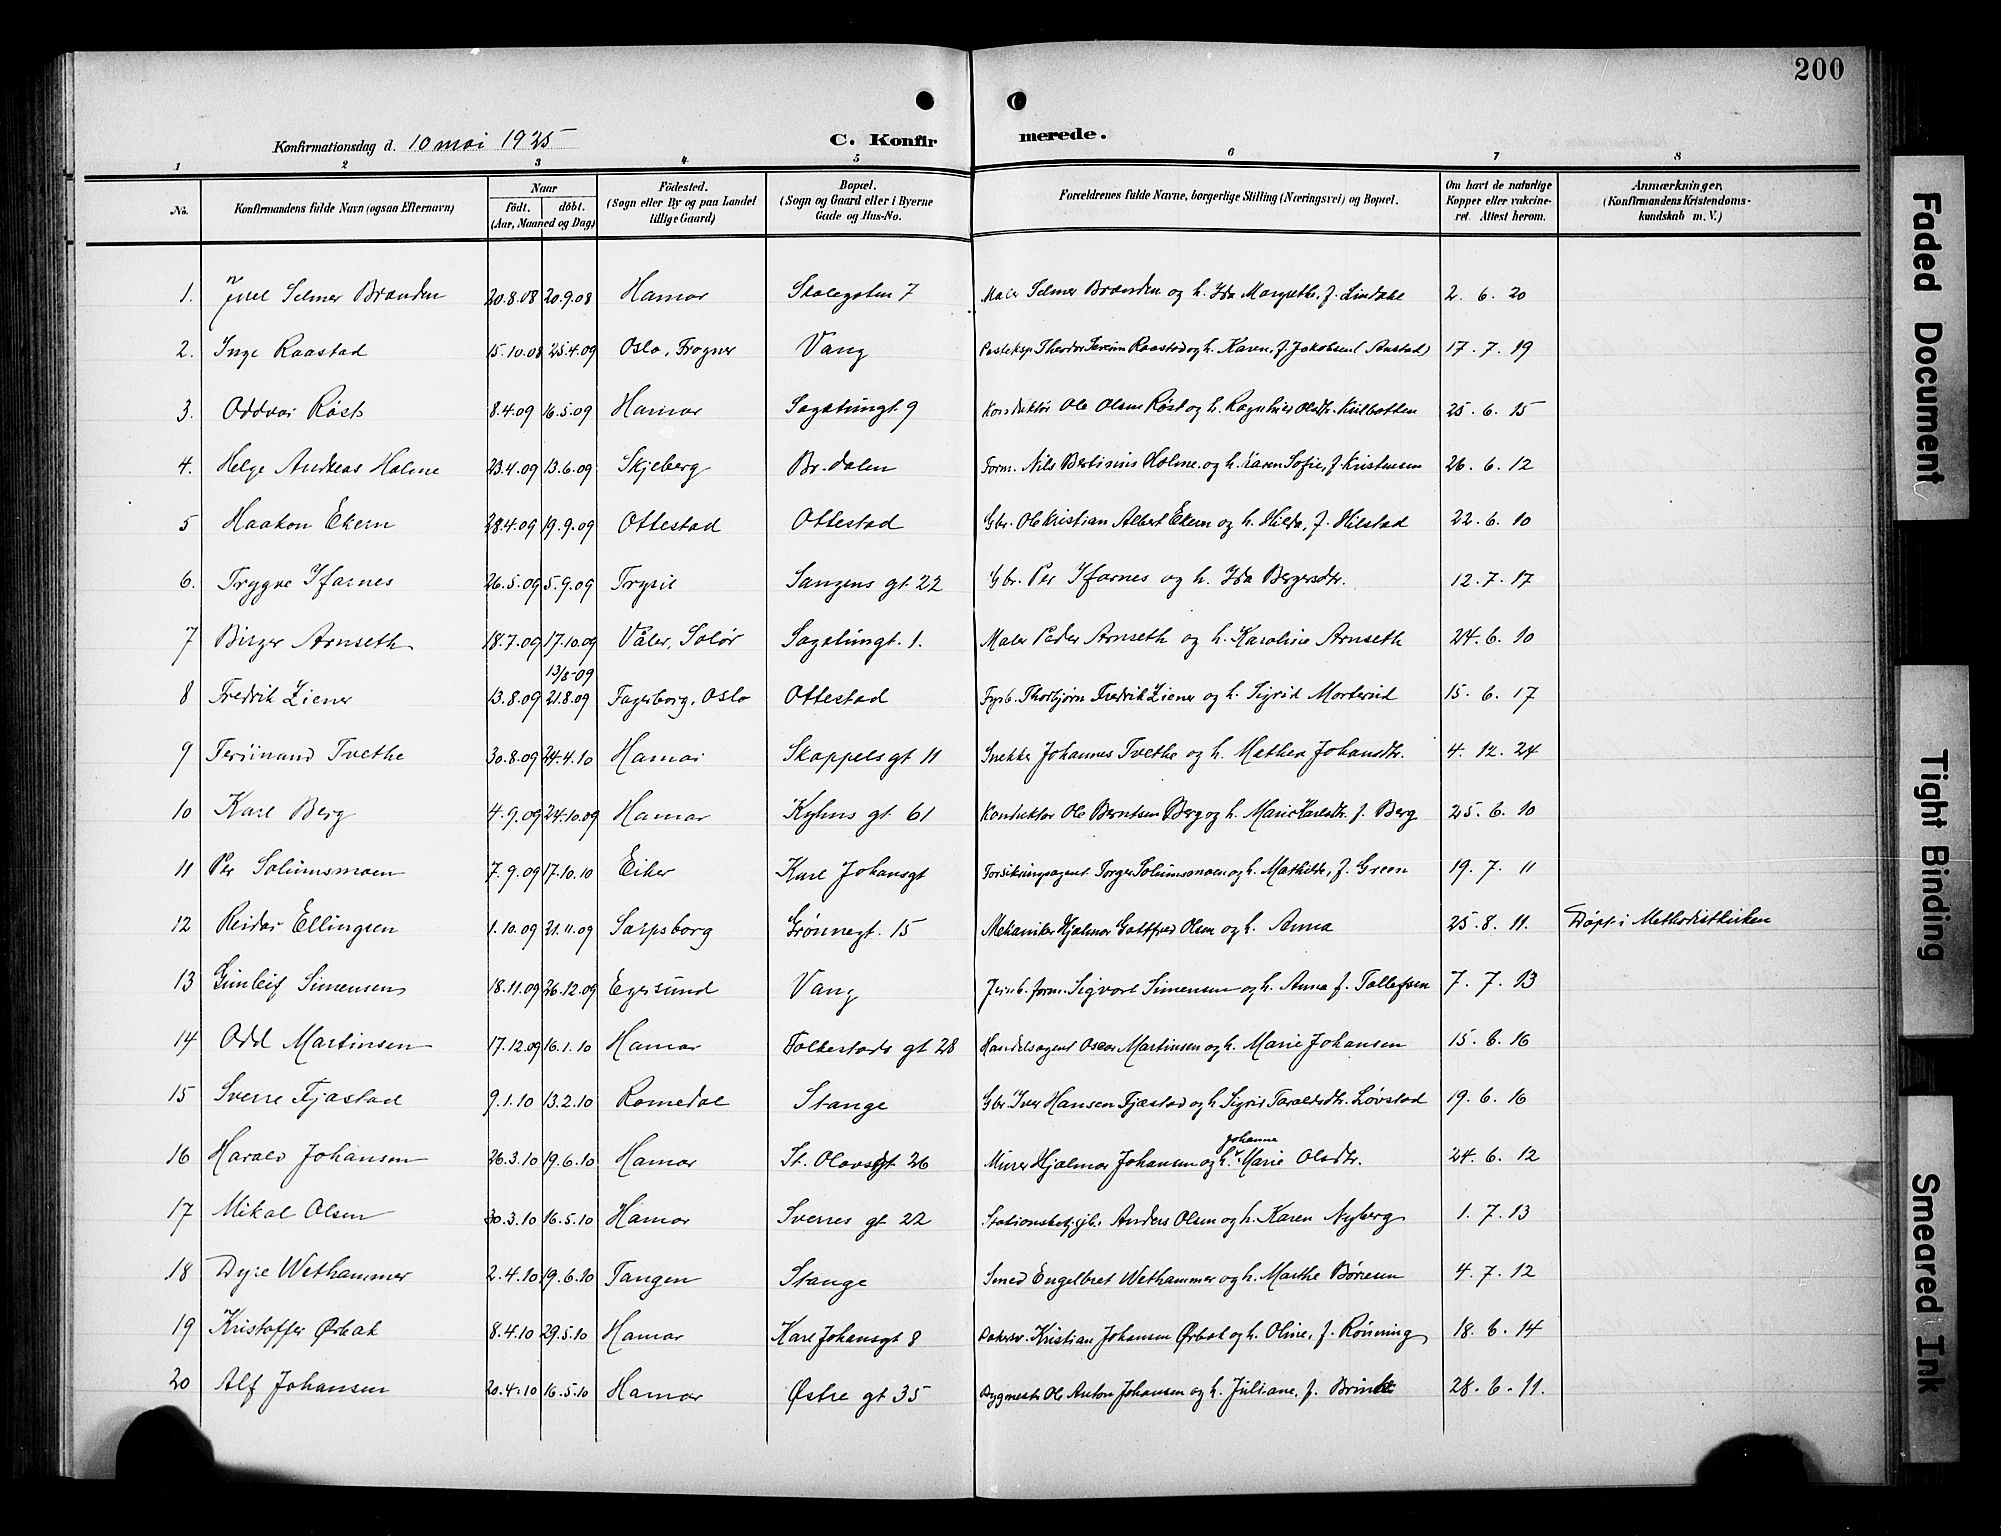 200
Konfirmationsdag d. 10 mai 1925
C. Konfirmerede.
1 2 3 4 5 6 7 8
No. Konfirmandens fulde Navn (ogsaa Efternavn) Naar født. døbt. (Aar, Maaned og Dag) Fødested. (Sogn eller By og paa Landet tillige Gaard) Bopæl. (Sogn og Gaard eller i Byerne Gade og Hus-No. Forældrenes fulde Navne, borgerlige Stilling (Næringsvei) og Bopæl. Om havt de naturlige Kopper eller vakcineret. Attest herom. Anmærkninger. (Konfirmandens Kristendomskundskab m. V.)
1. Juel Selmer Brænden 20.8.08 20.9.08 Hamar Skolegaten 7 Maler Selmer Brænden og h. Ida Margrethe, f. Lindahl 2. 6. 20
2. Inge Raastad 15.10.08 25.4.09 Oslo, Frogner Vang Posteksp. Theodor Severin Raastad og h. Karen, f. Jakobsen (Anstad) 17. 7. 19
3. Oddvar Røst 8.4.09 16.5.09 Hamar Sagatungt. 9 Konduktør Ole Olsen Røst og h. Ragnhild Olsdtr. Kulbotten 25. 6. 15
4. Helge Andreas Holme 23.4.09 13.6.09 Skjeberg Br.dalen Form. Nils Bertinius Holme og h. Karen Sofie, f. Kristensen 26. 6. 12
5 Haakon Ekern 28.4.09 19.9.09 Ottestad Ottestad Gbr. Ole Kristian Albert Ekern og h. Hilda, f. Hilstad 22. 6. 10
6. Trygve Ifarnes 26.5.09 5.9.09 Trysil Sangens gt. 22 Gbr. Per Ifarnes og h. Ida Bergersdtr. 12. 7. 17
7 Birger Arnseth 18.7.09 17.10.09 Våler, Solør Sagatungt. 1. Maler Peder Arnseth og h. Karoline Arnseth 24. 6. 10
13/8-09
8 Fredrik Ziener 13.8.09 21.8.09 Fagerborg, Oslo Ottestad Fyrb. Thorbjørn Fredrik Ziener og h. Sigrid Morterud 15. 6. 17
9 Ferdinand Tvethe 30.8.09 24.4.10 Hamar Skappelsgt 11 Snekker Johannes Tvethe og h. Mathea Johansdtr. 4. 12. 24
10 Karl Berg 4.9.09 24.10.09 Hamar Kyhns gt. 61 Konduktør Ole Berntsen Berg og h. Marie Karlsdtr. f. Berg 25. 6. 10
11 Per Solumsmoen 7.9.09 17.10.10 Eiker Karl Johansgt Forsikringsagent Torger Solumsmoen og h. Mathilde, f. Green 19. 7. 11
12 Reidar Ellingsen 1.10.09 21.11.09 Sarpsborg Grønnegt. 15 Mekaniker Hjalmar Gottfred Olsen og h. Anna 25. 8. 11. Døpt i Methodistkirken
13 Gunleif Simensen 18.11.09 26.12.09 Egersund Vang Jernb. form. Sigvart Simensen og h. Anna f. Tollefsen 7. 7. 13
14 Odd Martinsen 17.12.09 16.1.10 Hamar Folkestads gt 28 Handelsagent Oscar Martinsen og h. Marie Johansen 15. 6. 16
15 Sverre Fjæstad 9.1.10 13.2.10 Romedal Stange Gbr. Iver Hansen Fjæstad og h. Sigrid Taraldsdtr. Løvstad 19. 6. 16
Johanne
16 Harald Johansen 26.3.10 19.6.10 Hamar St. Olavsgt. 26 Murer Hjalmar Johansen og h. Marie Olsdtr. 24. 6. 12
17 Mikal Olsen 30.3.10 16.5.10 Hamar Sverres gt 22 Anders Olsen og h. Karen Nyberg 1. 7. 13
18 Dyre Wethammer 2.4.10 19.6.10 Tangen Stange Smed Engelbret Wethammer og h. Marthe Børresen 4. 7. 12
19 Kristoffer Ørbak 8.4.10 29.5.10 Hamar Karl Johansgt 8 Kristian Johansen Ørbak og h. Oline, f. Rønning 18. 6. 14
20 Alf Johansen 20.4.10 16.5.10 Hamar Østre gt 35 Bygmester Ole Anton Johansen og h. Juliane, f. Brink 28. 6. 11.
Faded Document
Tight Binding
Smeared Ink